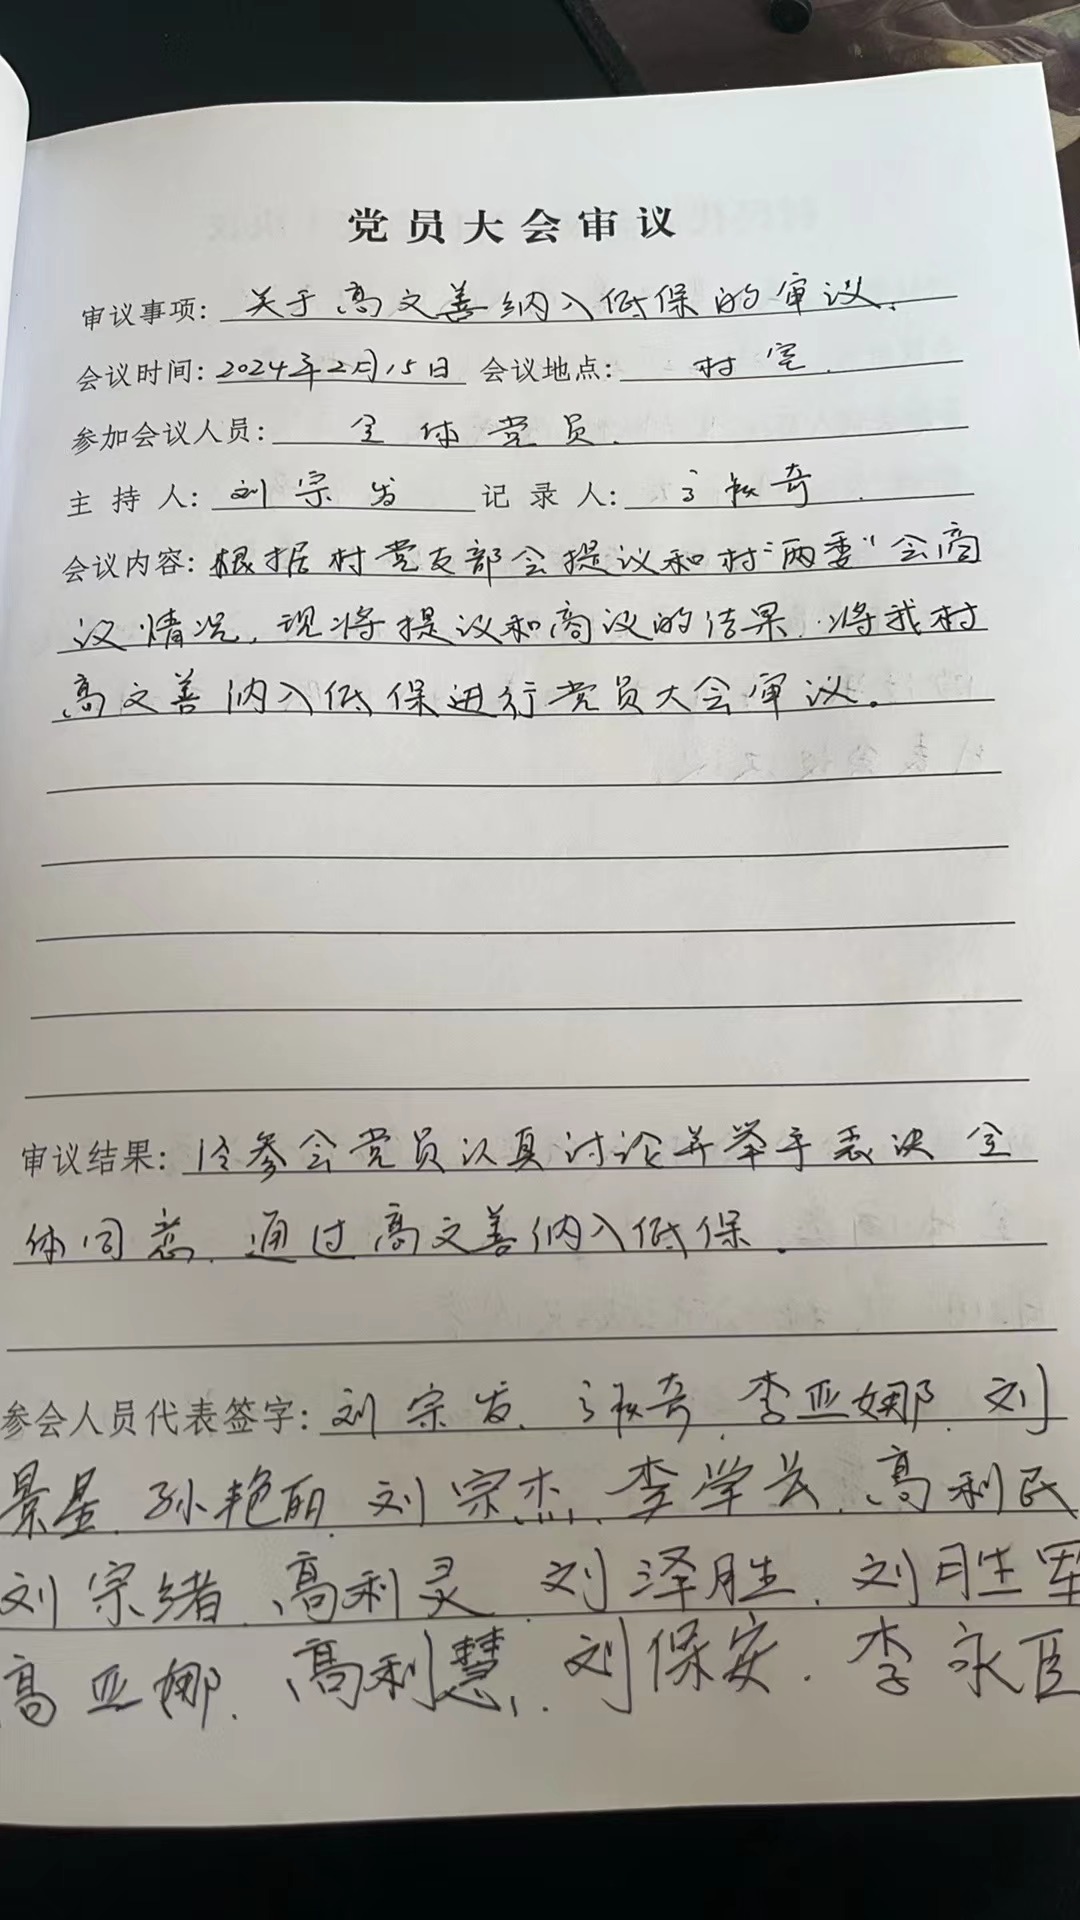 党员大会审议
审议事项: 关于高文善纳入低保的审议.
会议时间: 2024年2月15日 会议地点: 村室.
参加会议人员: 全体党员.
主持人: 刘宗发 记录人: 奇.
会议内容: 根据村党支部会提议和村“两委”会商
议情况, 现将提议和商议的结果, 将我村
高文善纳入低保进行党员大会审议。
审议结果: 经参会党员认真讨论并举手表决 全
体同意, 通过高文善纳入低保.
参会人员代表签字: 刘宗发. 奇. 李亚娜. 刘
景星. 孙艳丽. 刘宗杰. 李学兵. 高利民
刘宗绪. 高利灵. 刘泽胜. 刘胜军
高亚娜. 高利慧. 刘保安. 李永臣